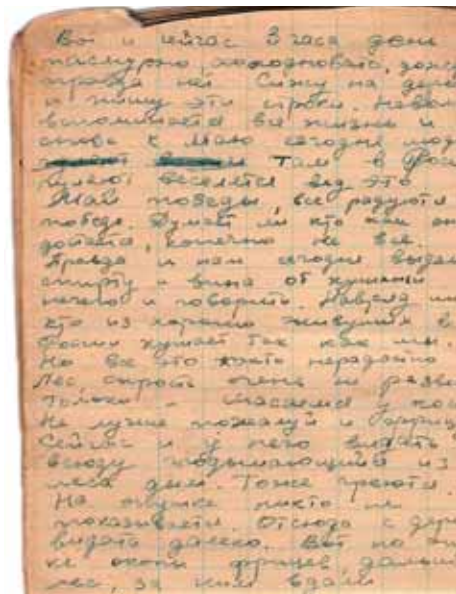 Вот и сейчас 3 часа дня
пасмурно, холодновато, дождя
правда нет. Сижу на дере
и пишу эти строки. Невол
вспоминается вся жизнь и
снова к Маю сегодня люд
там в Росс
гуляют веселятся ведь это
Май победы, все радуются
победе. Думает ли кто как он
достается, конечно не все.
Правда и нам сегодня выдал
спирту и вина от кушаний
нечего и говорить. Навряд ли
кто из хорошо живущих в
России кушает так как мы.
Но все это както нерадостно
Лес сырость очень не развес
только спасаемся у кос
Не лучше пожалуй и фриц
Сейчас и у него видать
всюду подымающийся из
леса дым. Тоже греются.
На опушке никто не
показывается. Отсюда с дере
видать далеко. Вот по
же окопы фрицев, дальш
лес, за ним вдали